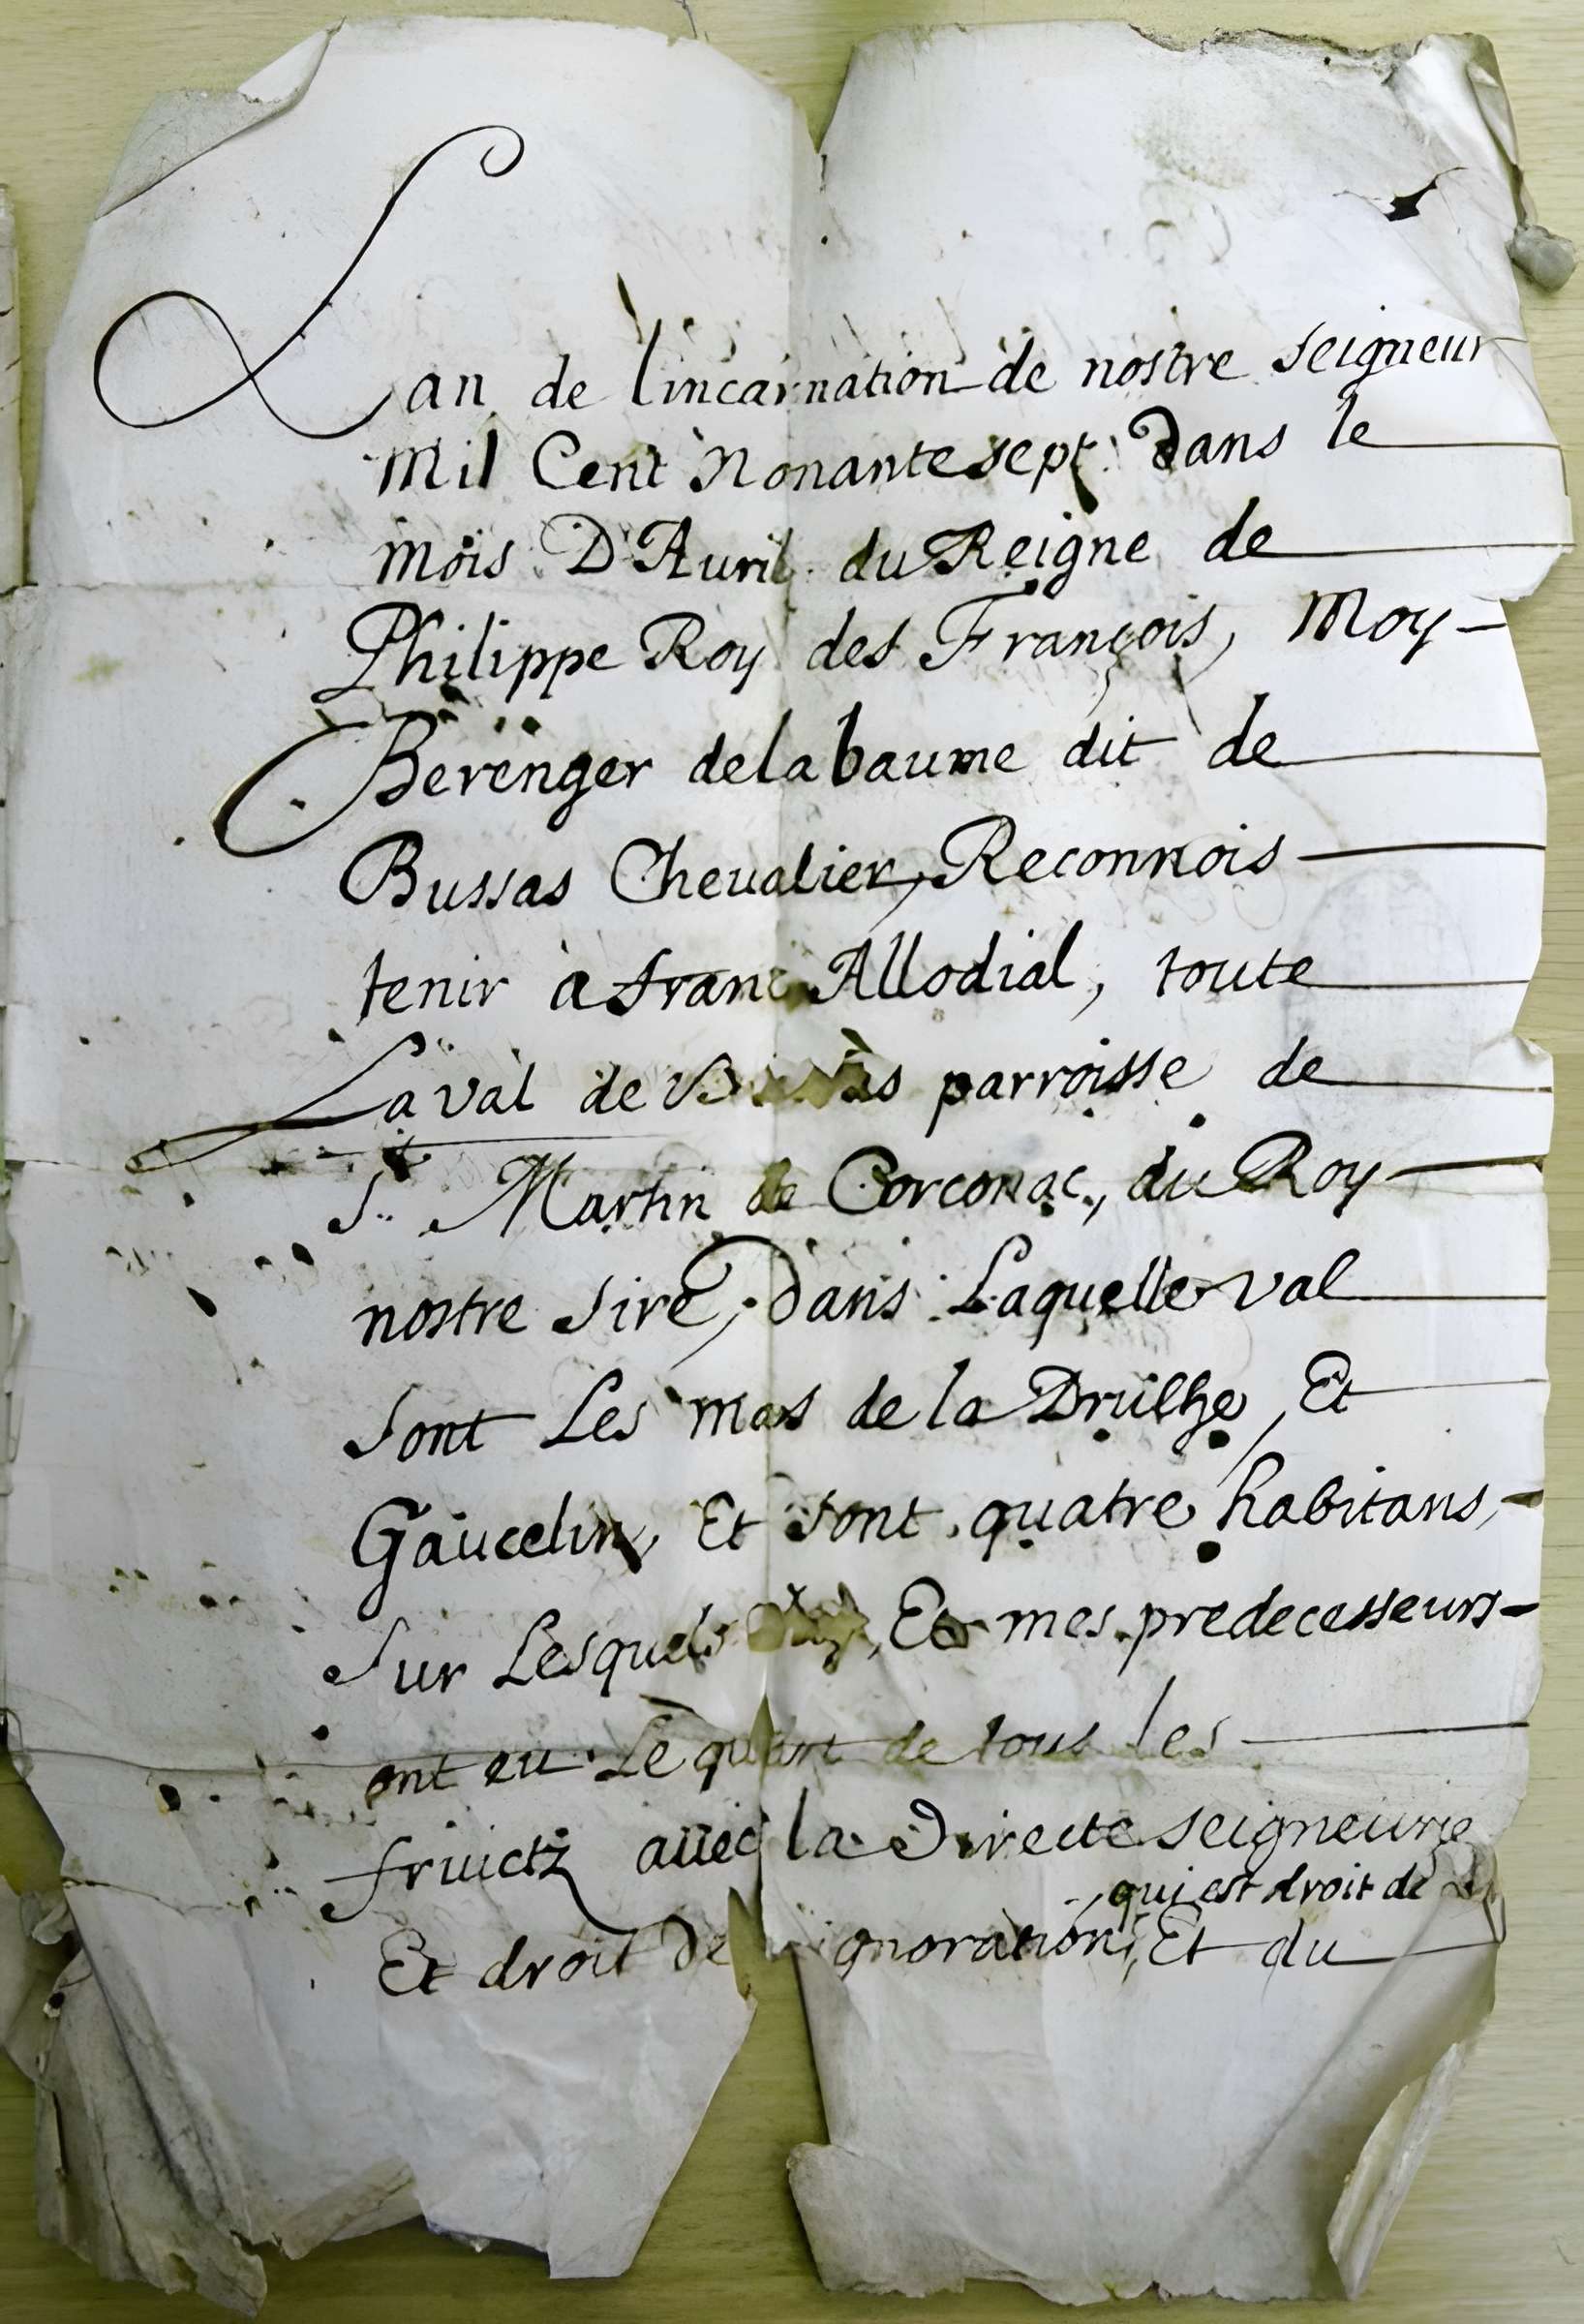 Lan de lincarnation de nostre seigneur
mil Cent Nonante sept dans le
mois D'Auril du Reigne de
Philippe Roy des François, Moy
Berenger de la baume dit de
Bussas Cheualier, Reconnois
tenir à franc Allodial, toute
La val de parroisse de
St. Martin de Corconac, du Roy
nostre sire, dans Laquelle val
sont Les mas de la Drulhe, Et
Gaucelin, Et sont quatre habitans,
sur Lesquels Et mes predecesseurs
ont eu Le quart de tous les
fruictz auec la directe seigneurie
qui est droit de
Et droit de Et du